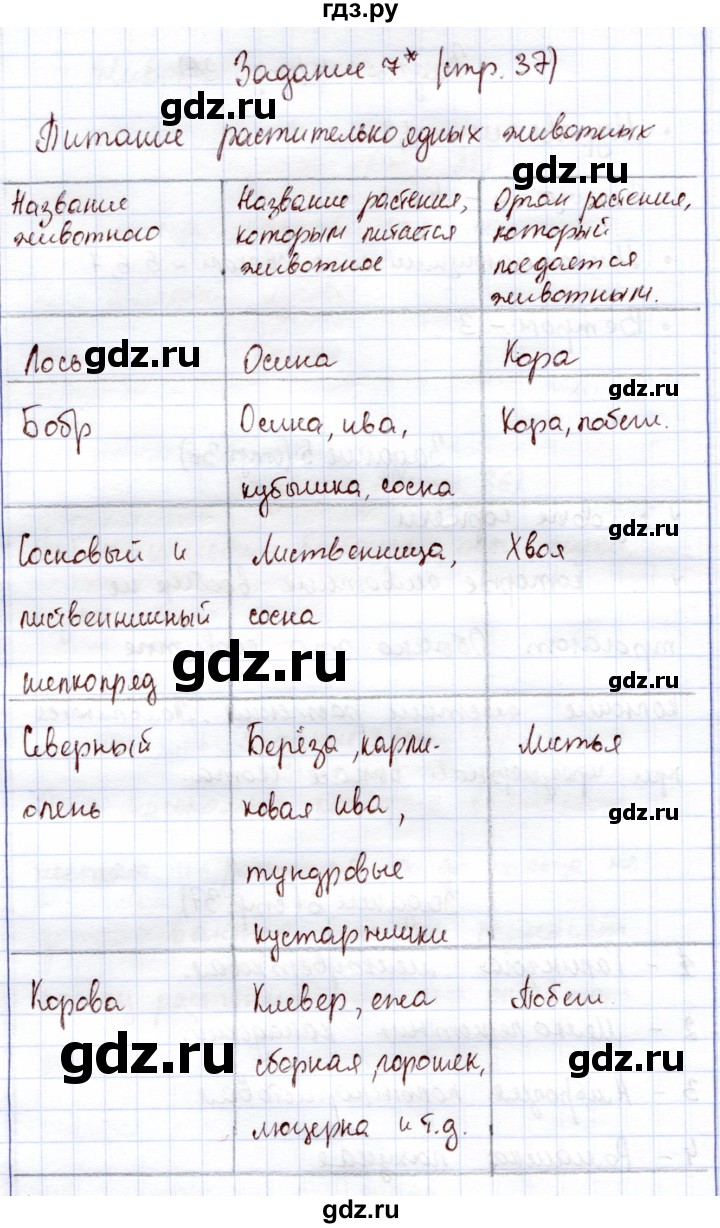 гдз.ру
Задание 7* (стр. 37)
gdz.ru
Питание растительноядных животных
gdz.ru
Название животного
Название растения, которым питается животное
Орган растения, который поедается животным.
gdz.ru
Лось
Осина
Кора
gdz.ru
Бобр
Осина, ива,
кубышка, сосна
Кора, побеги.
gdz.ru
Сосновый и
лиственничный
шелкопряд
Лиственница,
сосна
Хвоя
gdz.ru
gdz.ru
Северный
олень
Берёза, карли-
ковая ива,
тундровые
кустарники
Листья
gdz.ru
Корова
Клевер, ежа
сборная, горошек,
люцерна и т.д.
Побеги.
gdz.ru
gdz.ru
gdz.ru